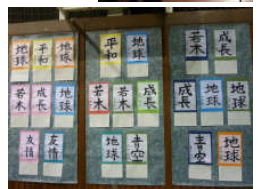 地球 平和 地球
若木 成長 地球
友情 友情
平和 地球
若木 若木 成長
地球 青空
若木 成長
成長 地球 地球
青空 地球